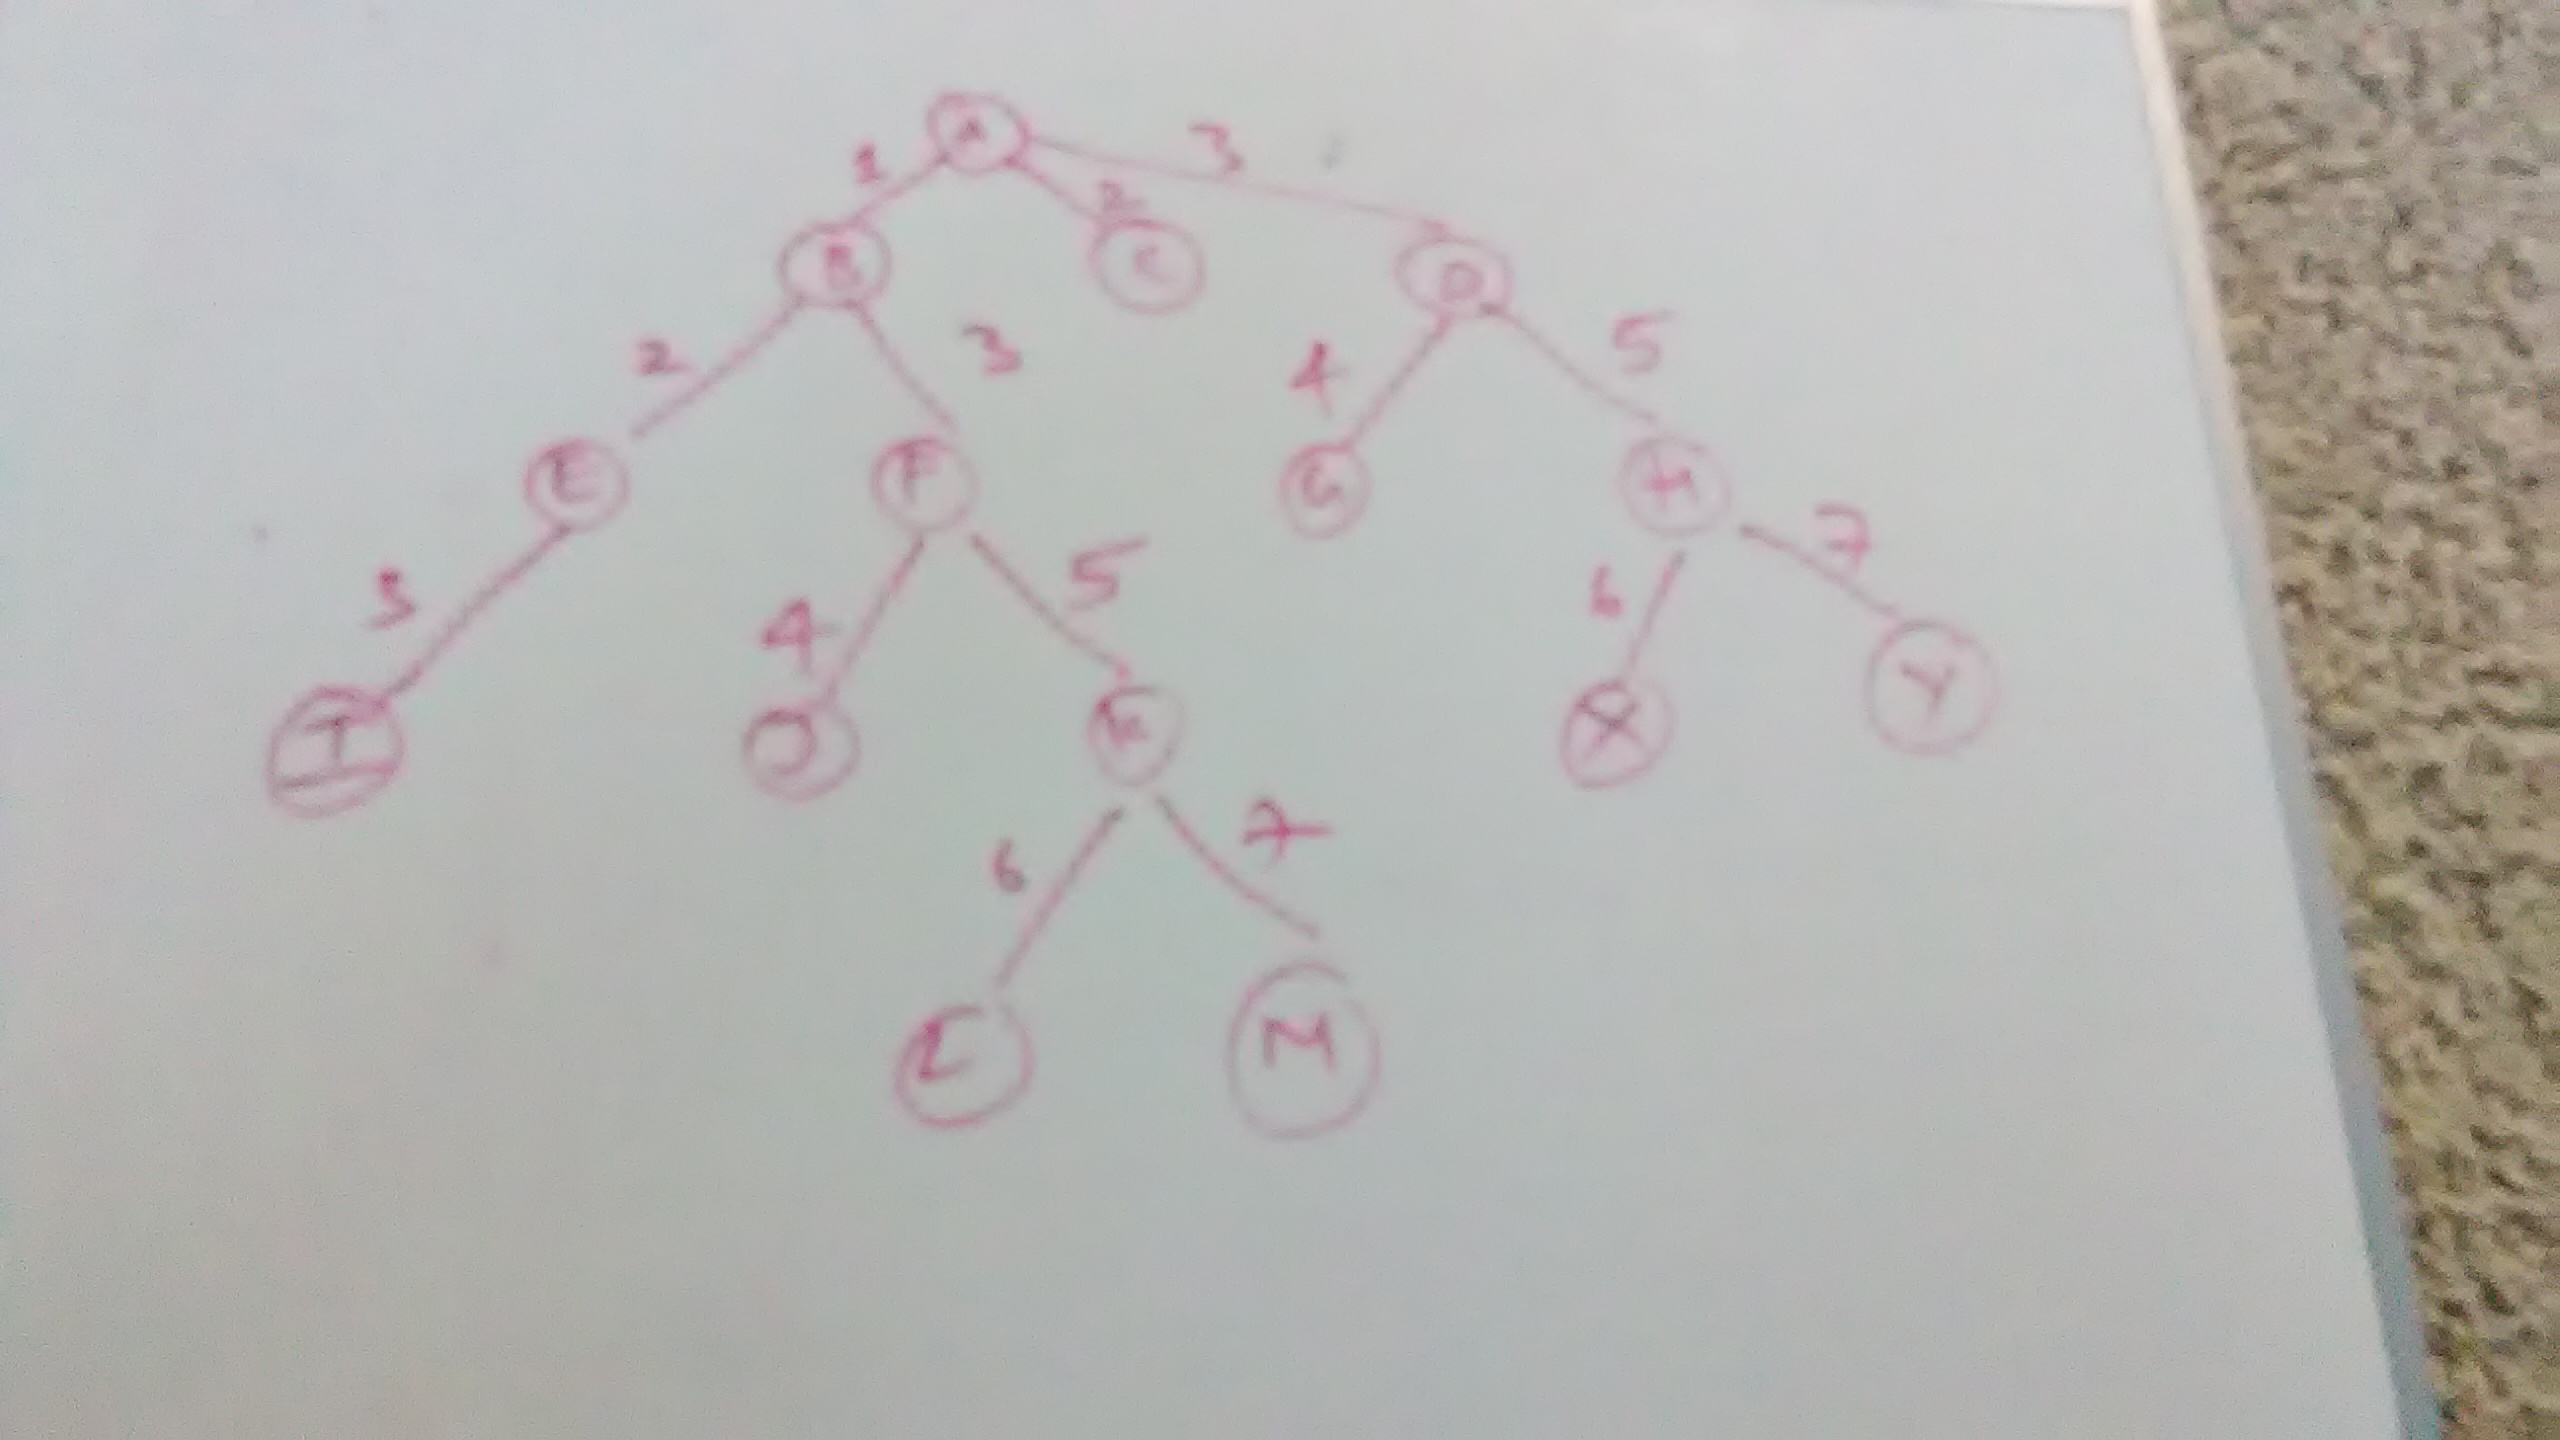 A
1 2 3
B C D
2 3 4 5
E F G H
3 4 5 6 7
I J K X Y
6 7
L M